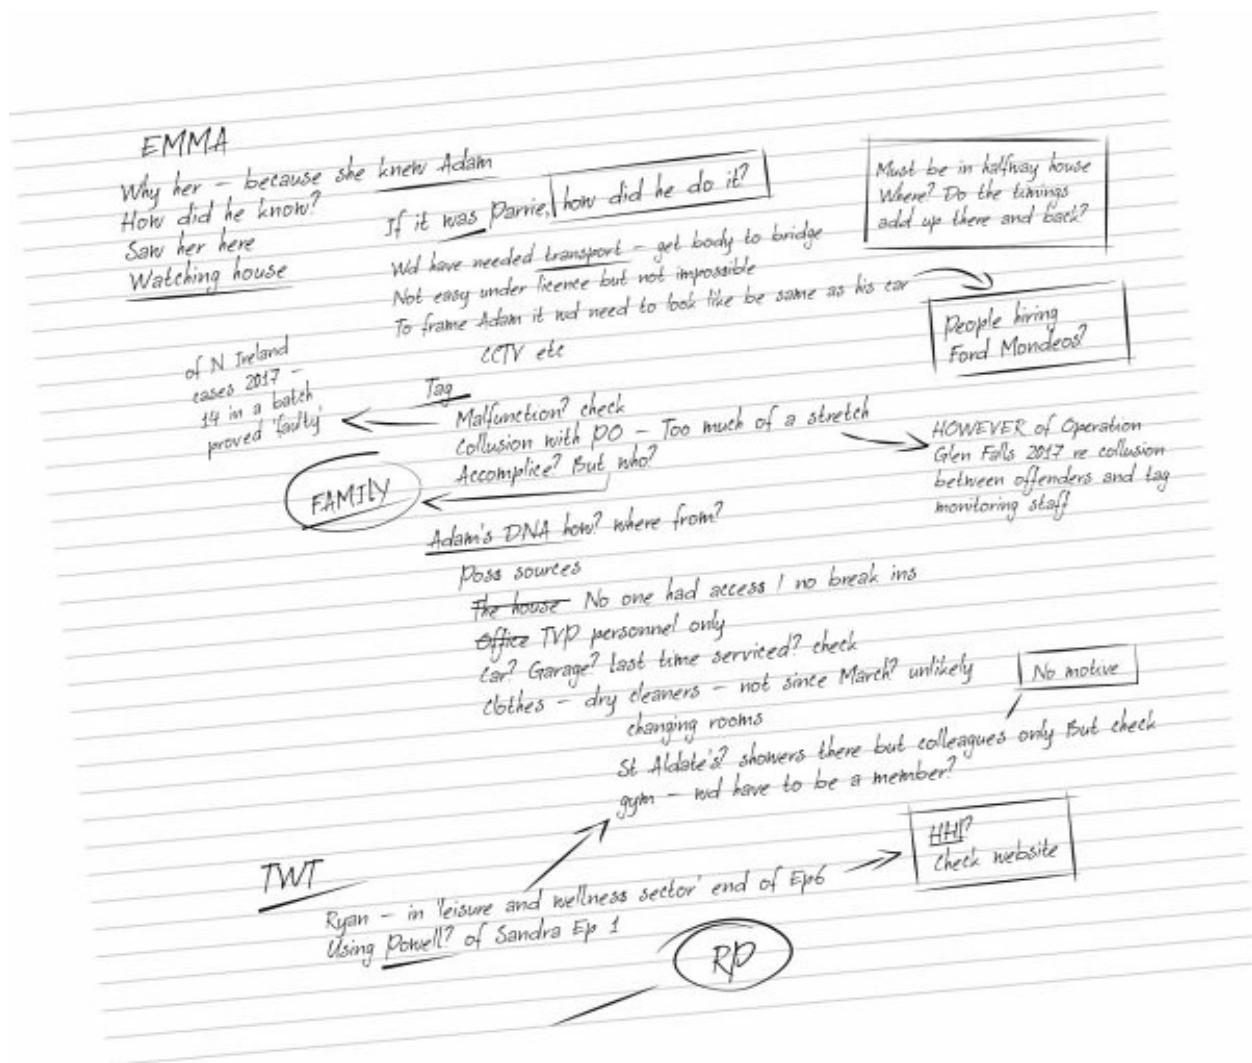 EMMA
Why her – because she knew Adam
How did he know?
Saw her here
Watching house
If it was Parrie, how did he do it?
Must be in halfway house
Where? Do the timings
add up there and back?
Wd have needed transport – get body to bridge
Not easy under licence but not impossible
To frame Adam it wd need to look like be same as his car
CCTV etc
People hiring
Ford Mondeos?
Tag
Malfunction? check
Collusion with PO – Too much of a stretch
Accomplice? But who?
of N Ireland
cases 2017 –
14 in a batch
proved 'faulty'
HOWEVER of Operation
Glen Falls 2017 re collusion
between offenders and tag
monitoring staff
FAMILY
Adam's DNA how? where from?
Poss sources
The house No one had access / no break ins
Office TVP personnel only
Car? Garage? last time serviced? check
Clothes – dry cleaners – not since March? unlikely
changing rooms
No motive
St Aldate's? showers there but colleagues only But check
gym – wd have to be a member?
TWT
Ryan – in 'leisure and wellness sector' end of Ep6
Using Powell? of Sandra Ep 1
HHP?
Check website
RP